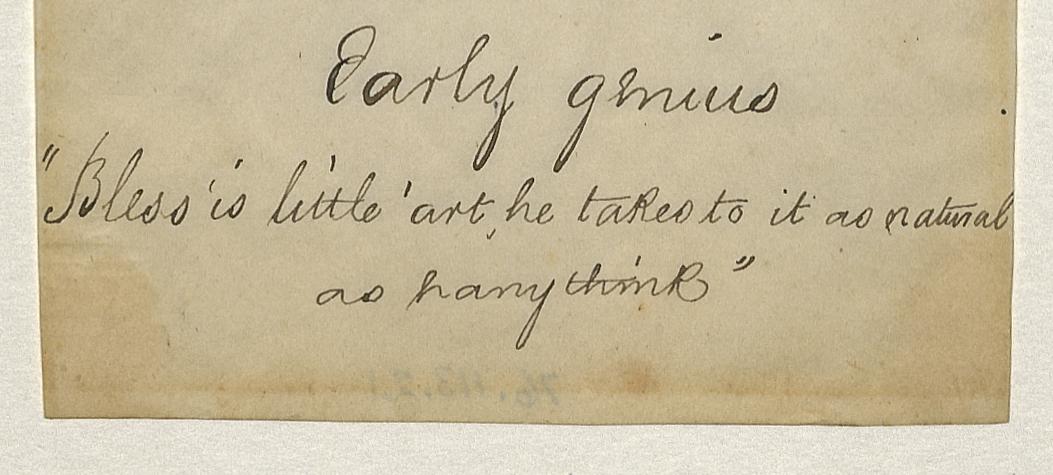 Early genius
"Bless 'is little 'art, he takes to it as natural
as hanythink"